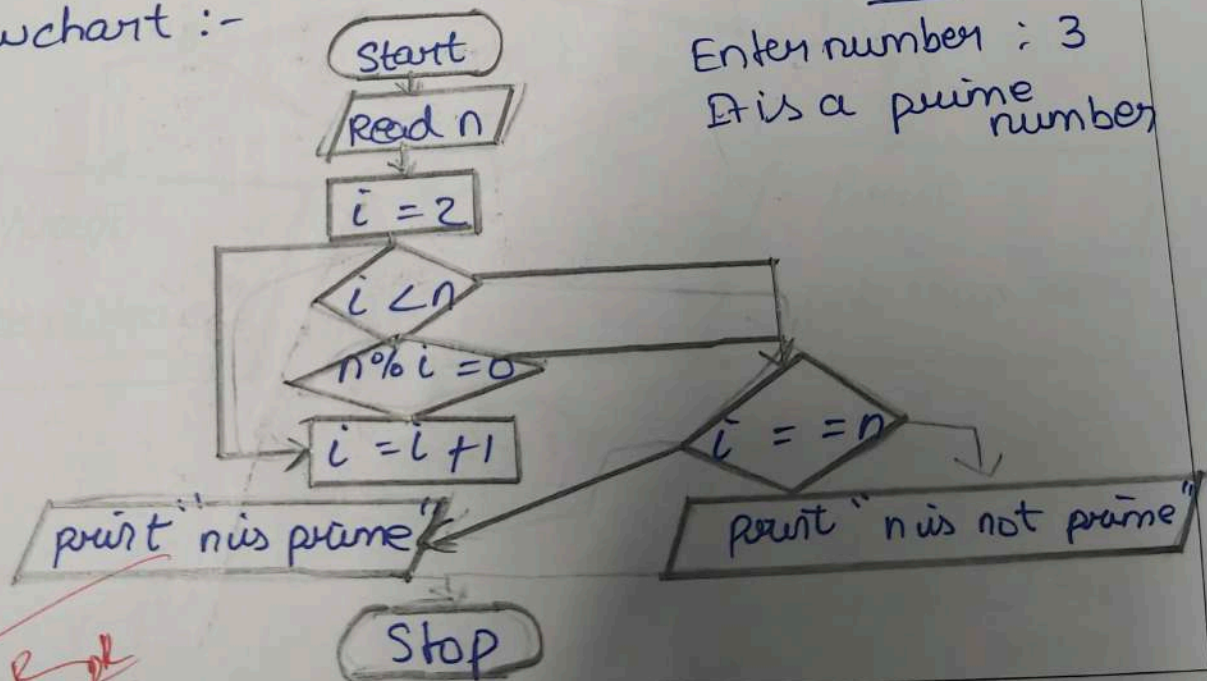 wchart :-
Start
Read n
i = 2
i < n
n % i = 0
i = i + 1
i = = n
print "n is prime"
print "n is not prime"
Stop
Enter number : 3
It is a prime
number